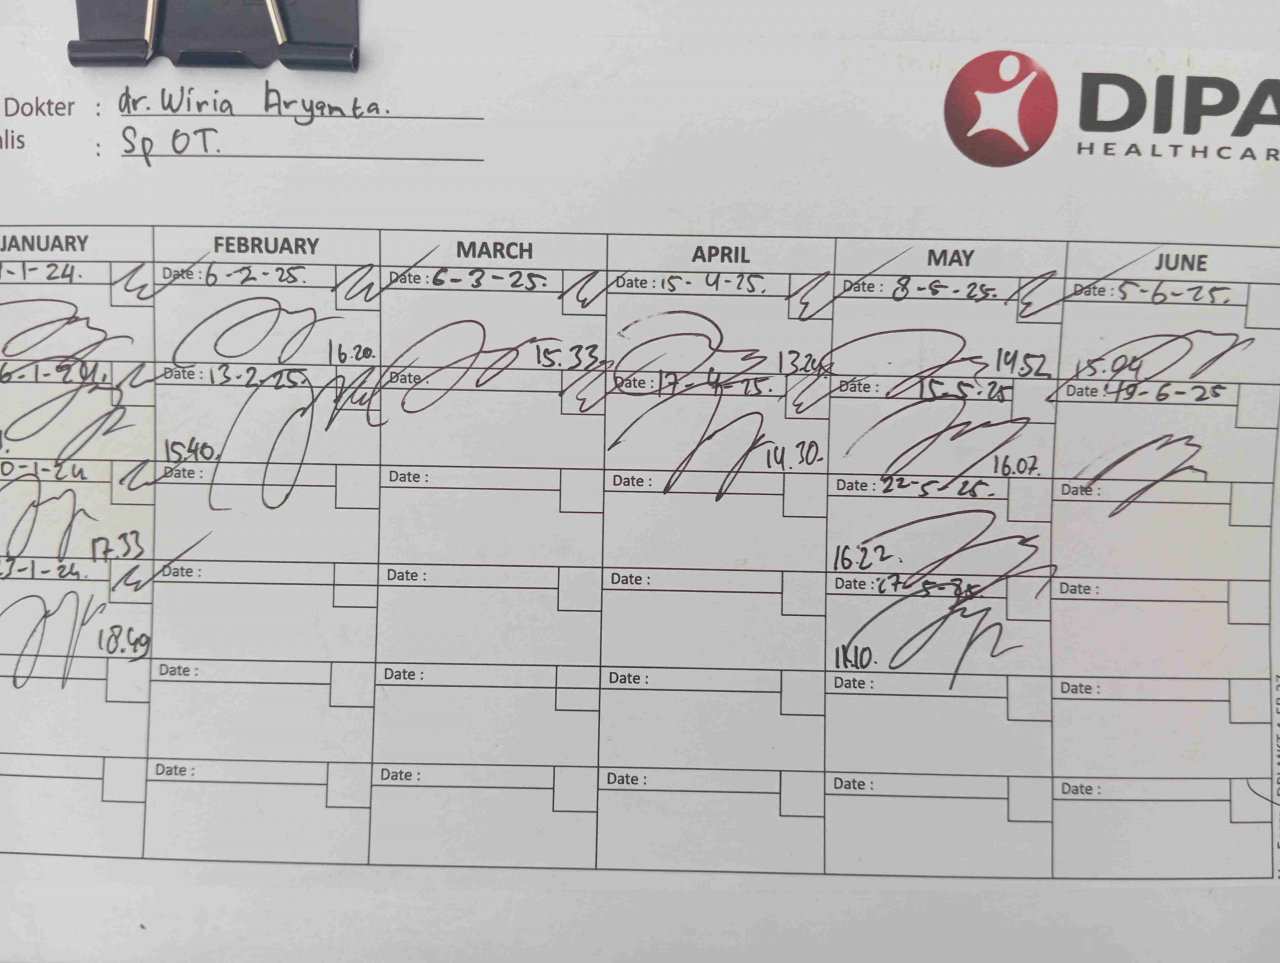 Dokter : dr. Wiria Aryamta.
alis : Sp OT.
DIPA
HEALTHCAR
JANUARY FEBRUARY MARCH APRIL MAY JUNE
-1-24. Date : 6-2-25. Date : 6-3-25. Date : 15-4-25. Date : 8-5-25. Date : 5-6-25.
16.20. 15.33 13.24 14.52 15.04
6-1-24. Date : 13-2-25. Date : Date : 17-4-25. Date : 15-5-25 Date : 19-6-25
15.40. 14.30. 16.07.
0-1-24 Date : Date : Date : Date : 22-5-25. Date :
17.33 16.22.
23-1-24. Date : Date : Date : Date : 27-5-25. Date :
18.49 11.10.
Date : Date : Date : Date : Date :
Date : Date : Date : Date : Date :